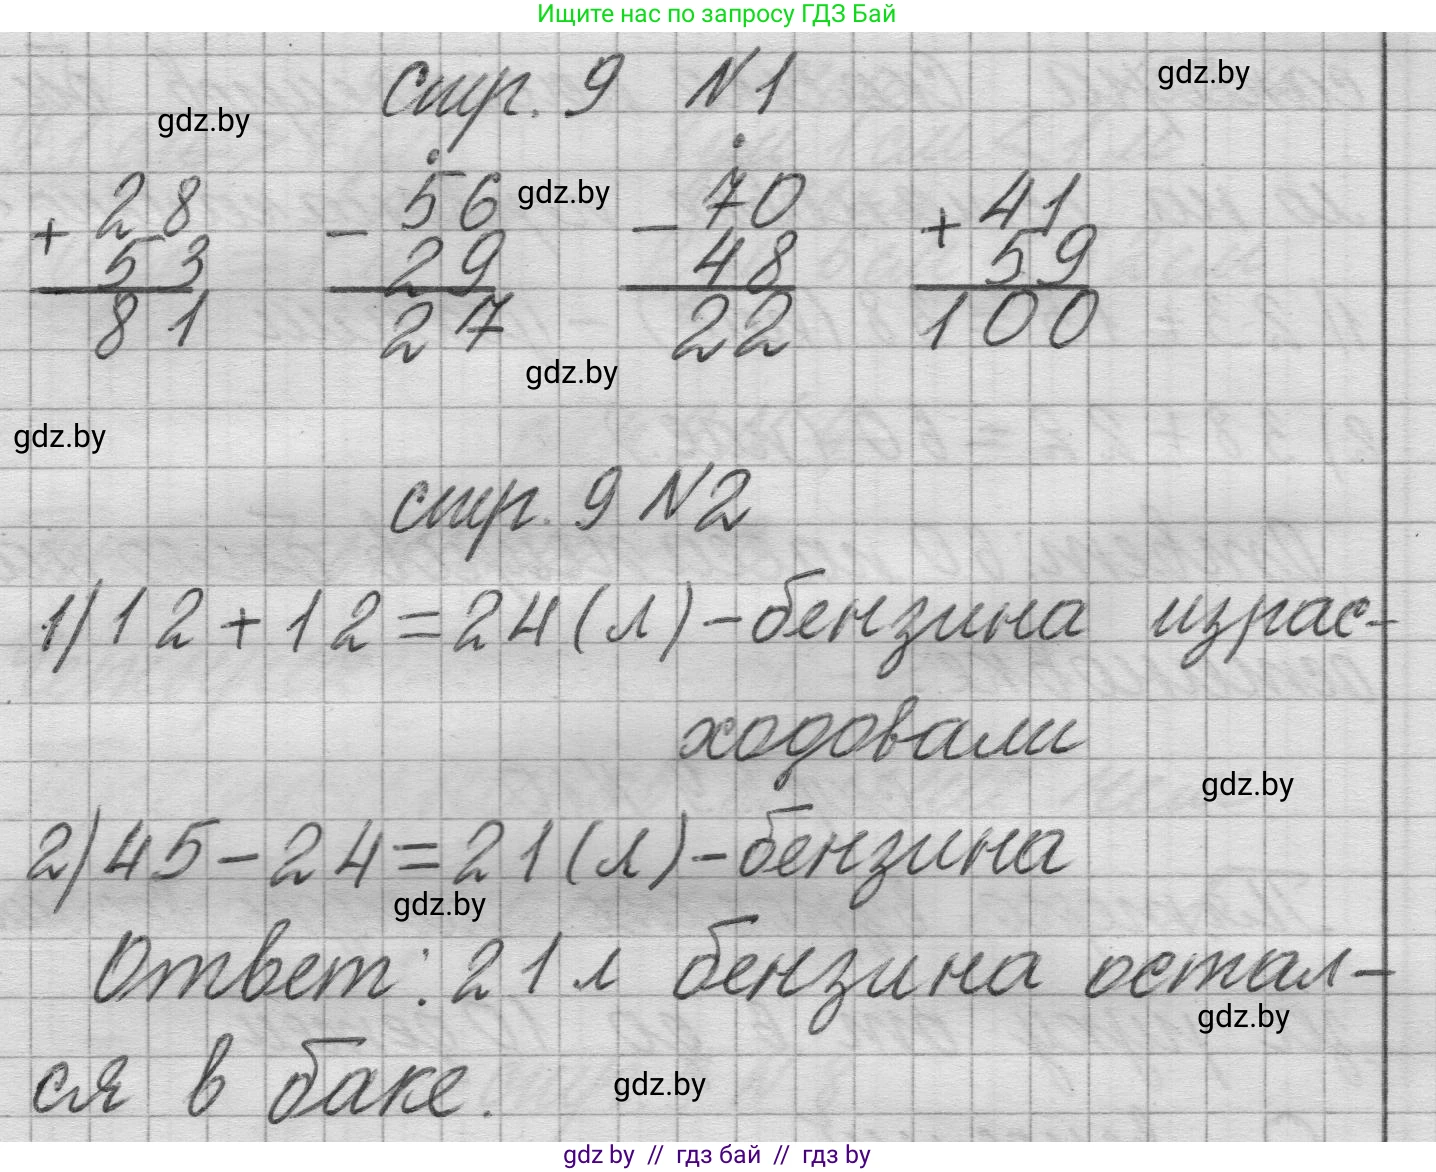 Ищите нас по запросу ГДЗ Бай
стр. 9 №1
gdz.by
gdz.by
+ 28 - 56 - 70 + 41
gdz.by
53 29 48 59
81 27 22 100
gdz.by
gdz.by
стр. 9 №2
1) 12 + 12 = 24 (л) - бензина израс-
ходовали
gdz.by
2) 45 - 24 = 21 (л) - бензина
gdz.by
Ответ: 21 л бензина остал-
gdz.by
ся в баке.
gdz.by
gdz by // гдз бай // гдз by